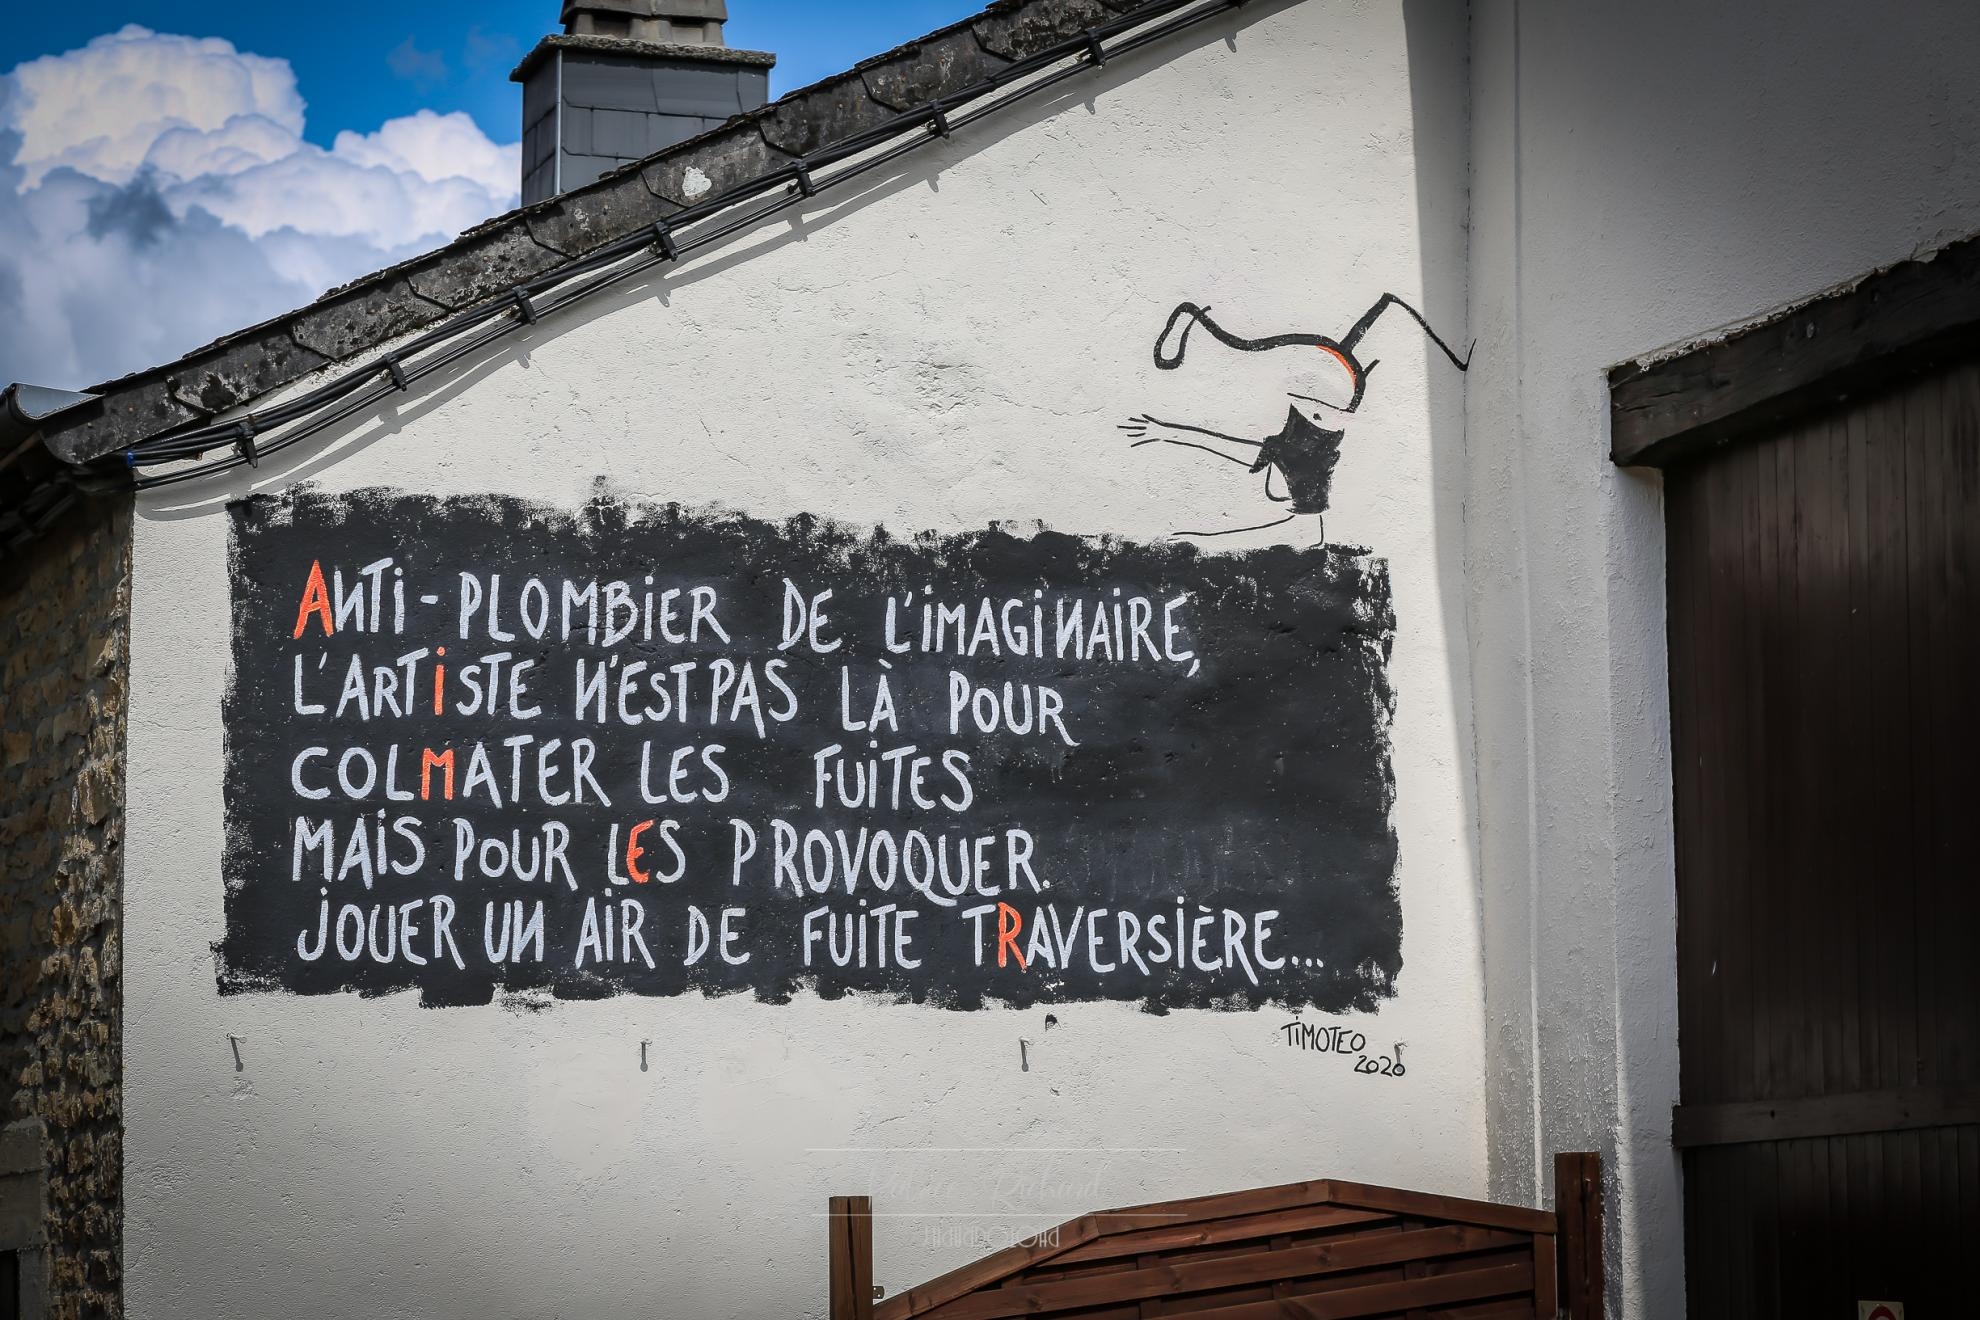 ANTI-PLOMBIER DE L'IMAGINAIRE,
L'ARTISTE N'EST PAS LÀ POUR
COLMATER LES FUITES
MAIS POUR LES PROVOQUER.
JOUER UN AIR DE FUITE TRAVERSIÈRE...
TIMOTEO
2020
Richard